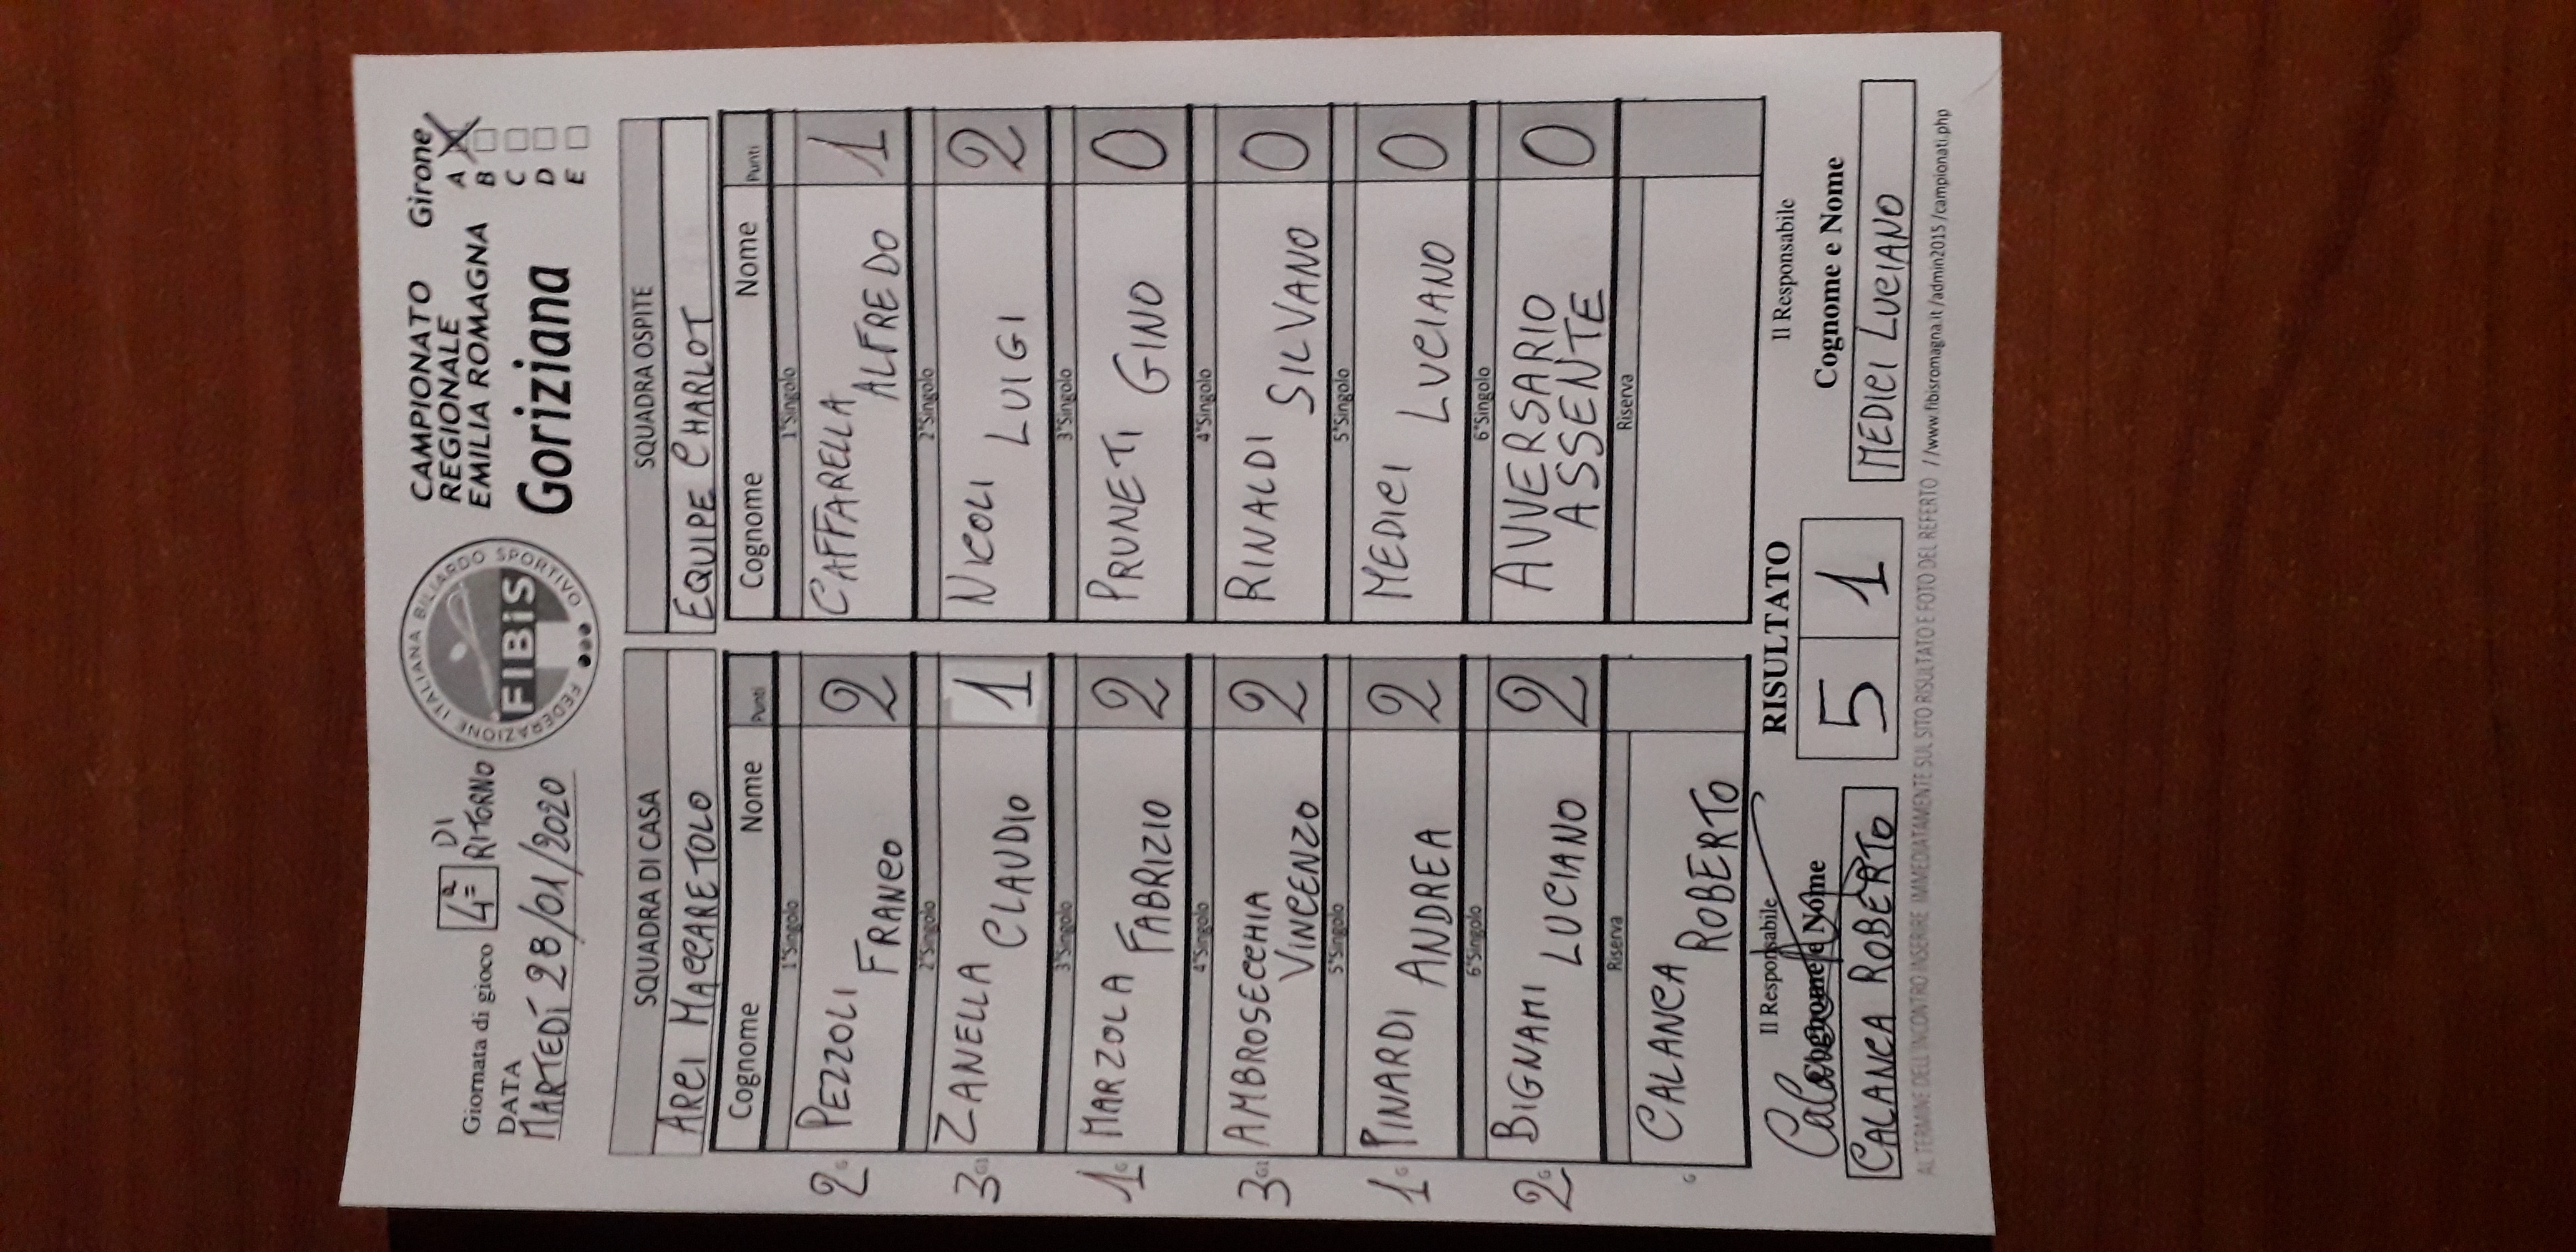 Giornata di gioco 4ª DI RITORNO
DATA
MARTEDÍ 28/01/2020
FEDERAZIONE ITALIANA BILIARDO SPORTIVO
FIBiS
CAMPIONATO
REGIONALE
EMILIA ROMAGNA
Goriziana
Girone
A X
B
C
D
E
SQUADRA DI CASA
ARCI MACCARETOLO
Cognome Nome Punti
1°Singolo
2 G PEZZOLI FRANCO 2
2°Singolo
3 G1 ZANELLA CLAUDIO 1
3°Singolo
1 G MARZOLA FABRIZIO 2
4°Singolo
3 G1 AMBROSECCHIA VINCENZO 2
5°Singolo
1 G PINARDI ANDREA 2
6°Singolo
2 G BIGNAMI LUCIANO 2
Riserva
G CALANCA ROBERTO
SQUADRA OSPITE
EQUIPE CHARLOT
Cognome Nome Punti
1°Singolo
CAFFARELLA ALFREDO 1
2°Singolo
NICOLI LUIGI 2
3°Singolo
PRUNETI GINO 0
4°Singolo
RINALDI SILVANO 0
5°Singolo
MEDICI LUCIANO 0
6°Singolo
AVVERSARIO ASSENTE 0
Riserva
Il Responsabile
Cognome e Nome
CALANCA ROBERTO
RISULTATO
5 1
Il Responsabile
Cognome e Nome
MEDICI LUCIANO
AL TERMINE DELL'INCONTRO INSERIRE IMMEDIATAMENTE SUL SITO RISULTATO E FOTO DEL REFERTO //www.fibisromagna.it/admin2015/campionati.php